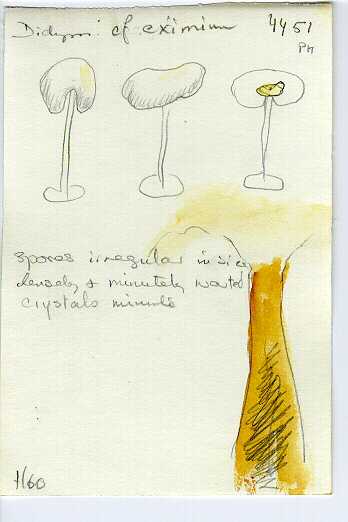 Didym. cf. eximium 4451
PH
Spores irregular in size
densely & minutely warted
crystals minute
1/60